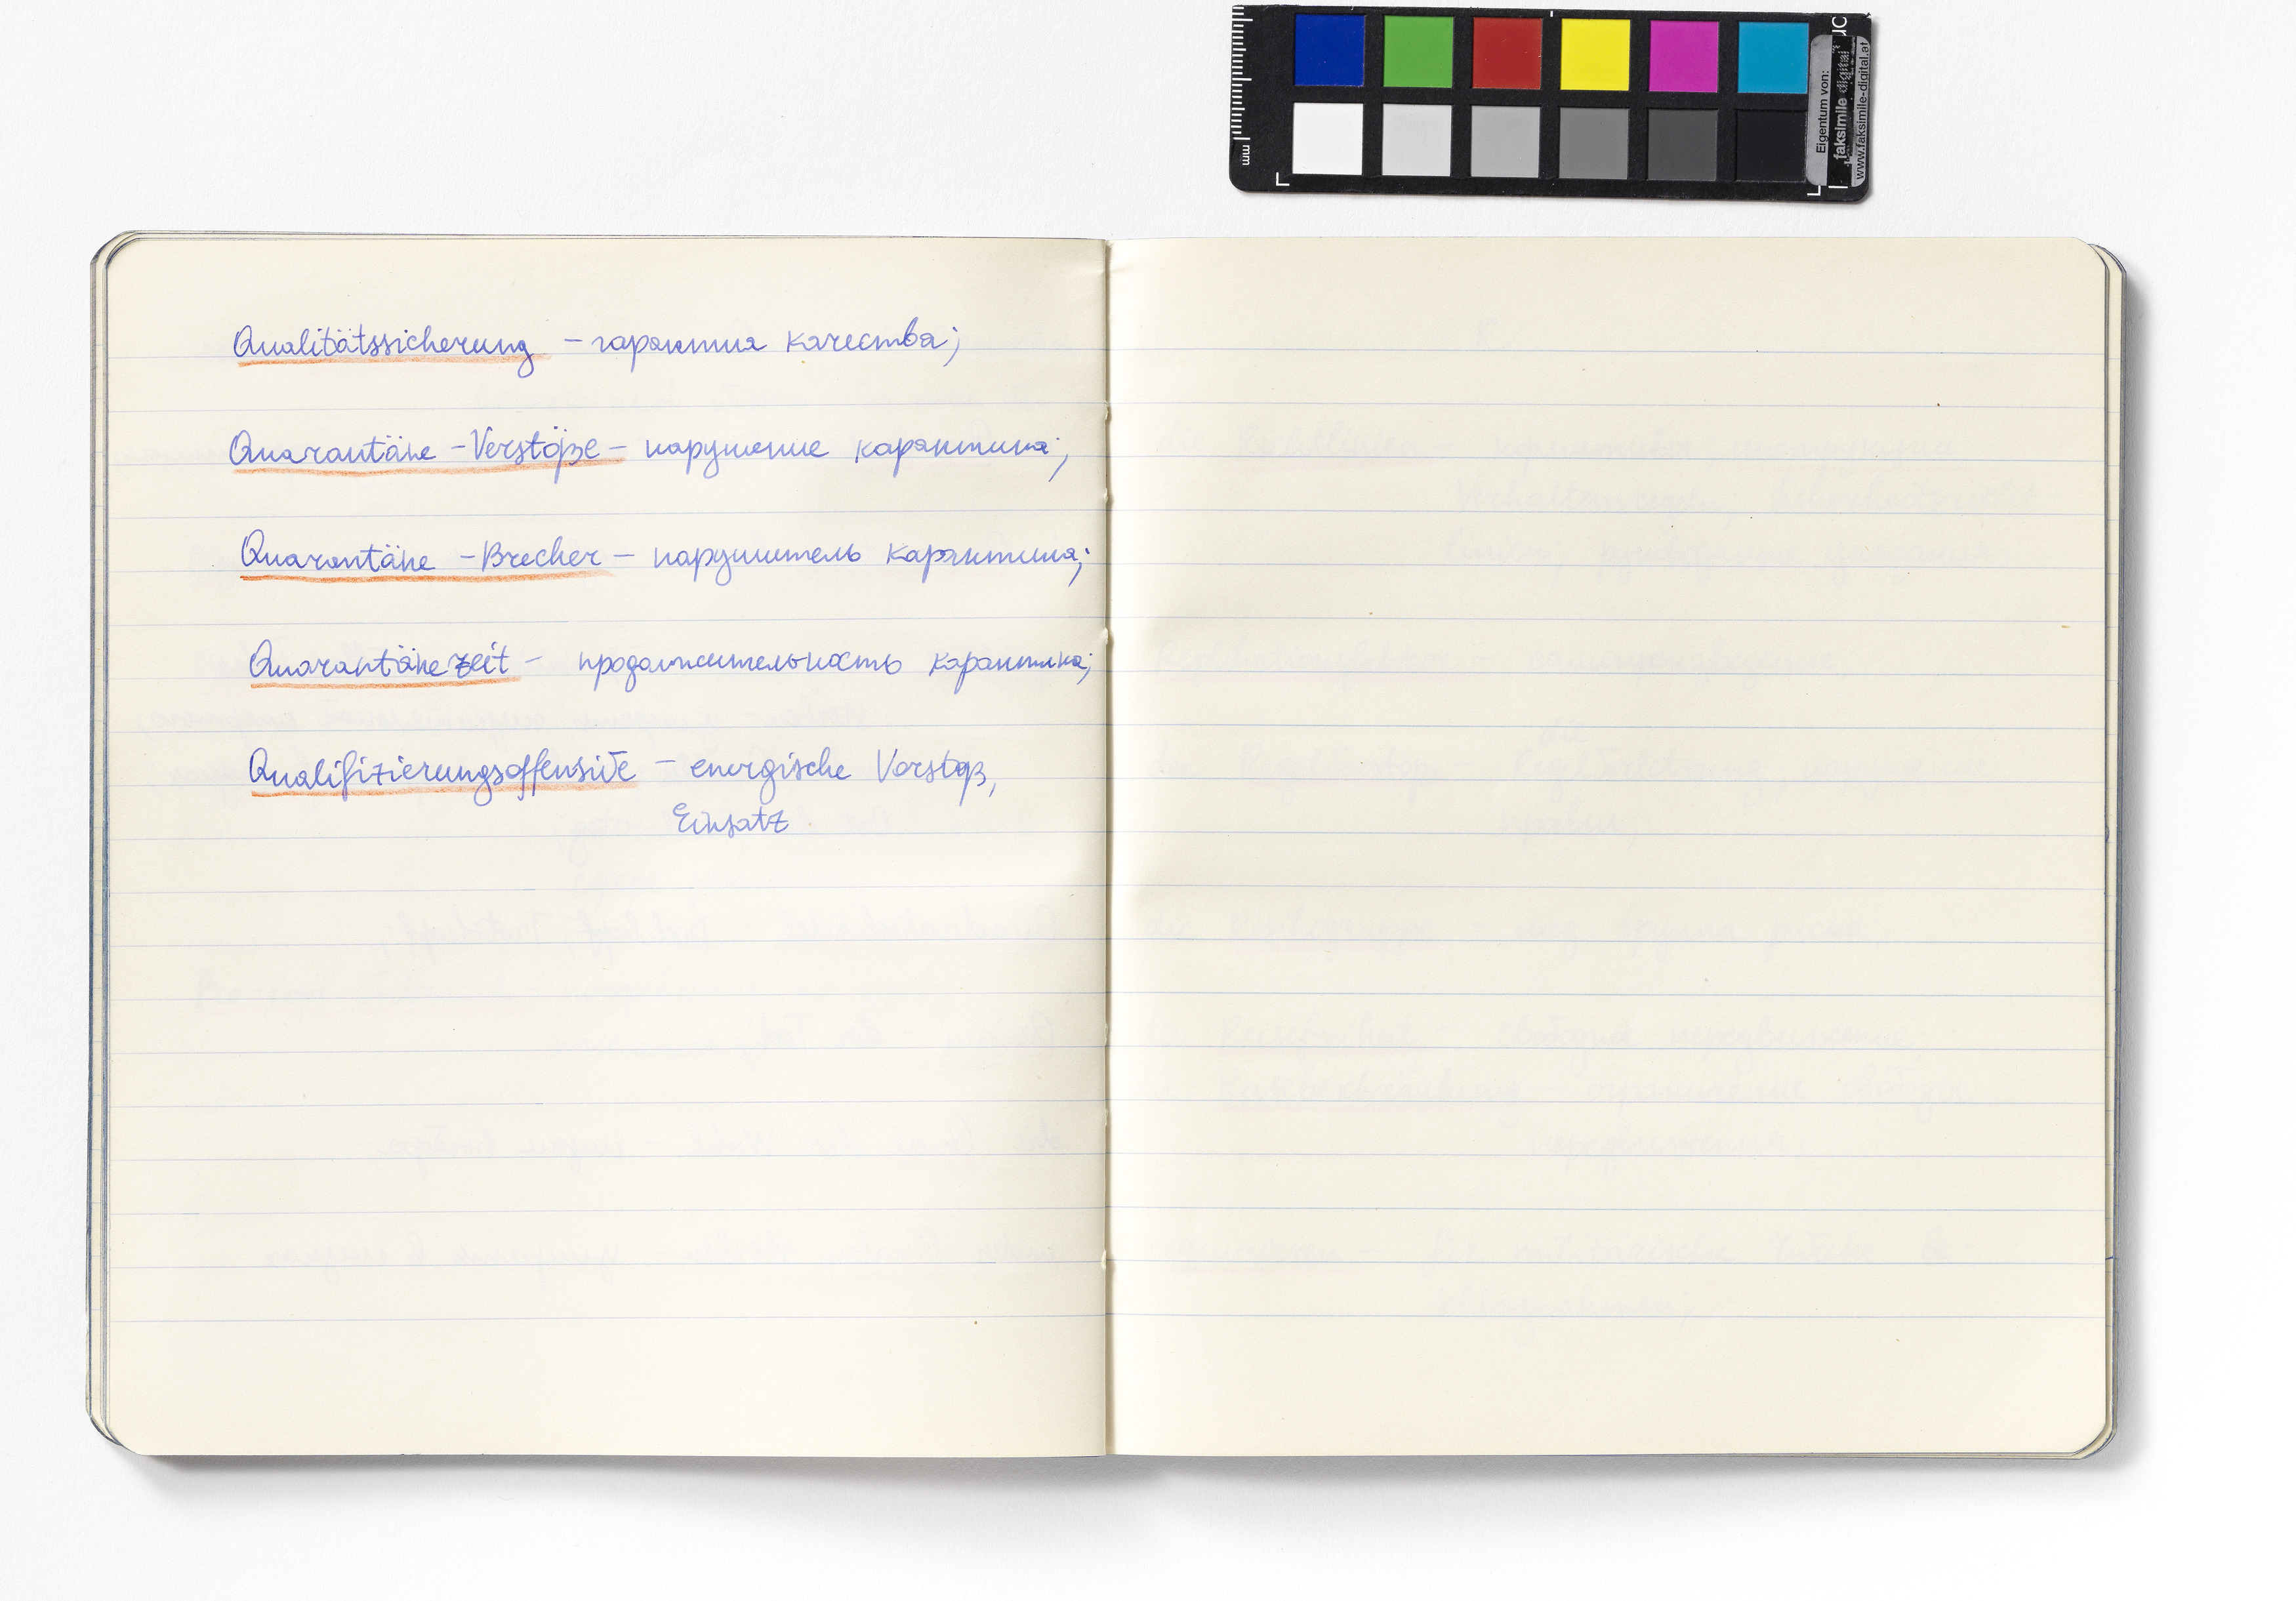 Qualitätssicherung – гарантия качества;
Quarantäne-Verstöße – нарушение карантина;
Quarantäne-Brecher – нарушитель карантина;
Quarantänezeit – продолжительность карантина;
Qualifizierungsoffensive – energische Vorstoß,
Einsatz
mm
Eigentum von:
faksimile digital
www.faksimile-digital.at